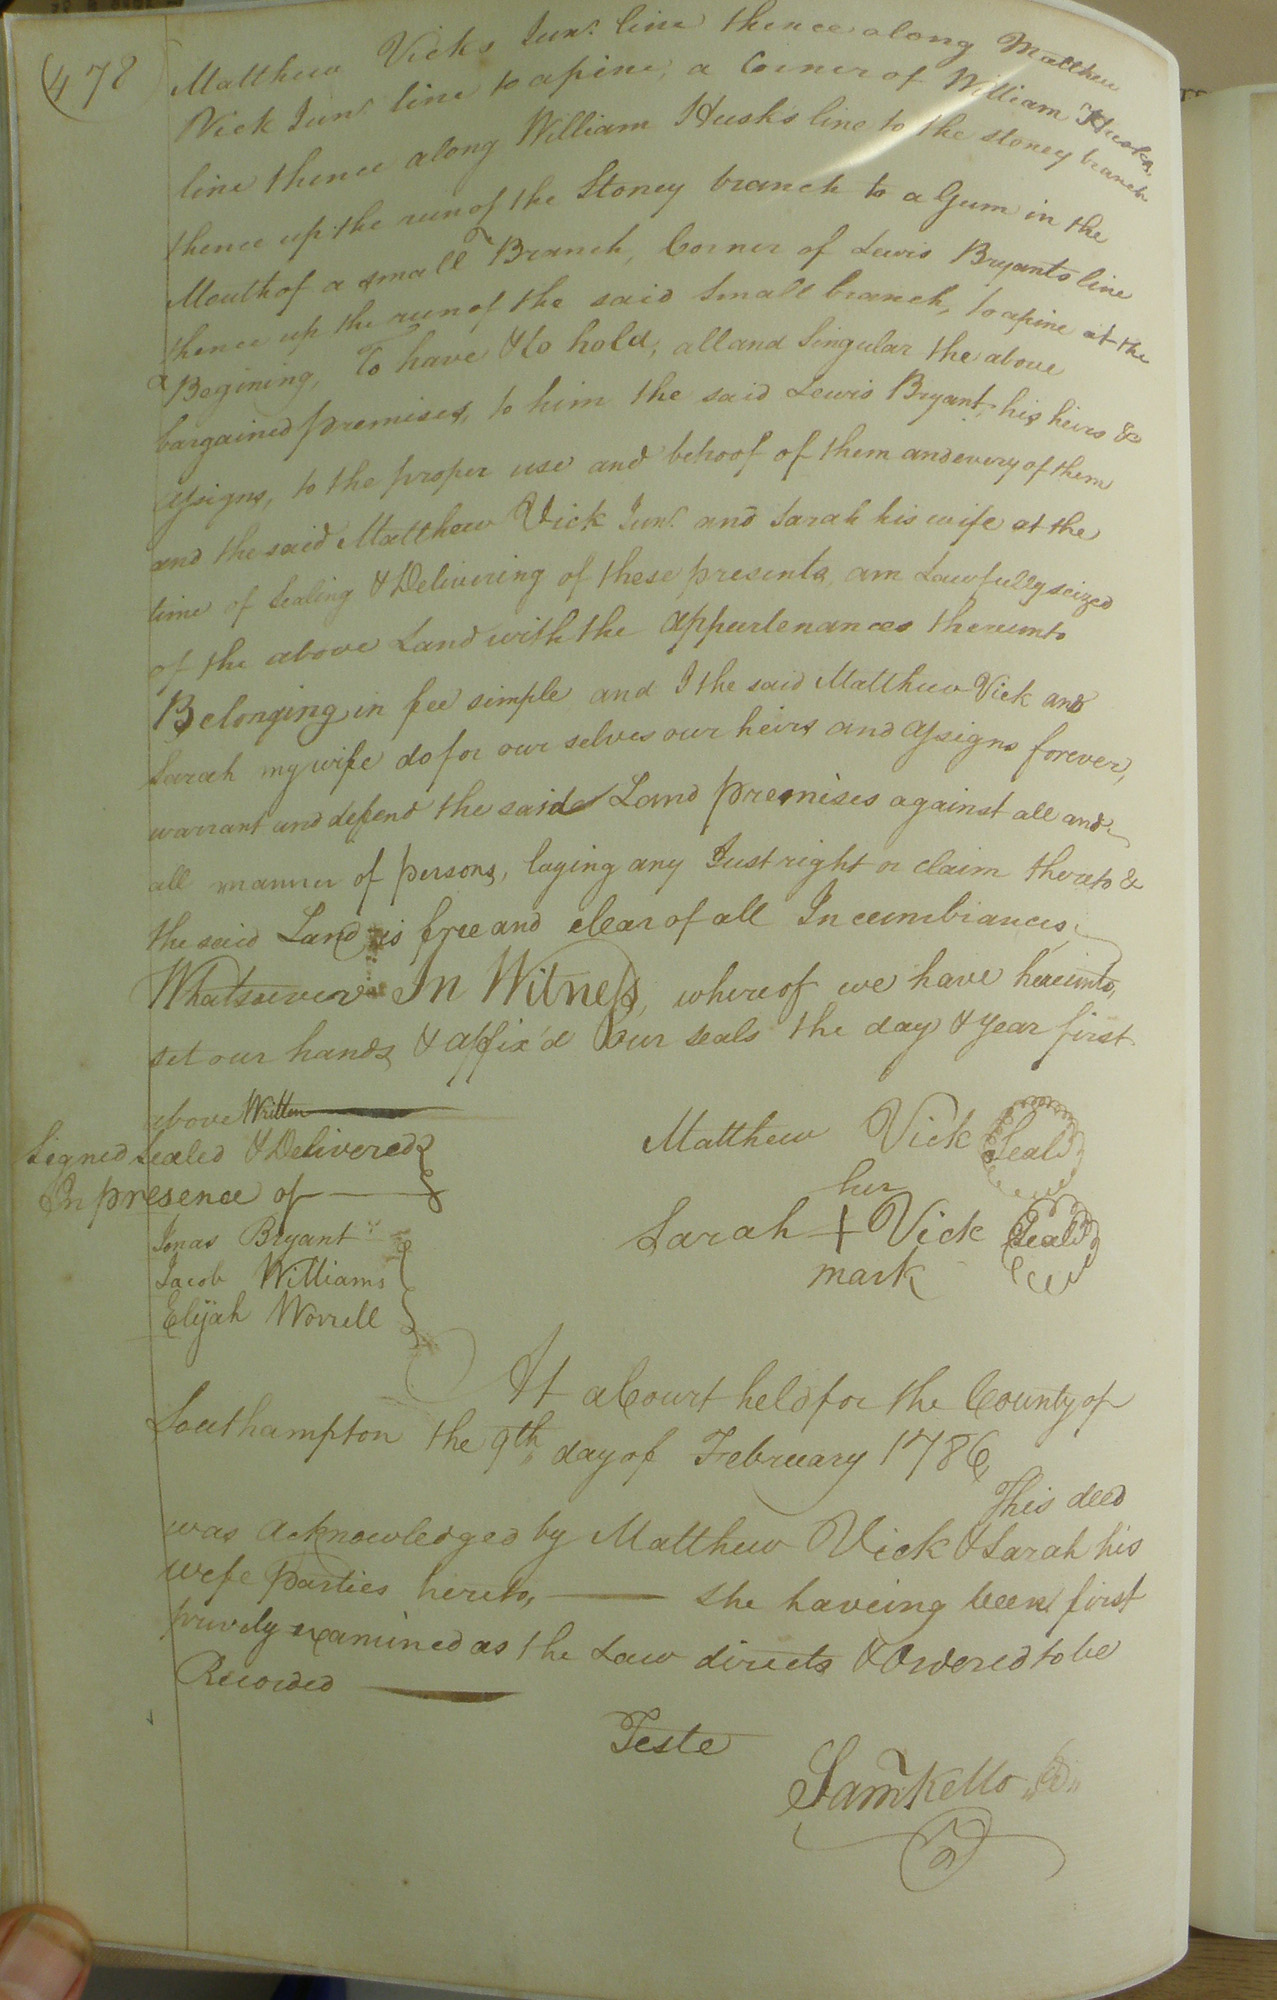 (478)
Matthew Vicks Junr. line thence along Matthew
Vick Junr. line to a pine, a Corner of William Husks
line thence along William Husks line to the stoney branch
thence up the run of the Stoney branch to a Gum in the
Mouth of a small Branch, Corner of Lewis Bryants line
thence up the run of the said Small branch, to a pine at the
Begining, To have & to hold, all and Singular the above
bargained premises, to him the said Lewis Bryant, his heirs &
assigns, to the proper use and behoof of them and every of them
and the said Matthew Vick Junr. and Sarah his wife at the
time of Sealing & Delivering of these presents, am Lawfully seized
of the above Land with the appurtenances thereunto
Belonging in fee simple and I the said Matthew Vick and
Sarah my wife do for our selves our heirs and assigns forever,
warrant and defend the said Land premises against all and
all manner of persons, laying any Just right or claim thereto &
the said Land is free and clear of all Incumbrances
Whatsoever In Witness, whereof we have hereunto,
set our hands & affix'd our seals the day & year first
above Written
Signed Sealed & Delivered
In presence of
Jonas Bryant
Jacob Williams
Elijah Worrell
Matthew Vick Seal
her
Sarah + Vick Seal
mark
At a Court held for the County of
Southampton the 9th day of February 1786,
This deed
was acknowledged by Matthew Vick & Sarah his
wife parties hereto, she haveing been first
privily examined as the Law directs & Ordered to be
Recorded
Teste
Saml Kello